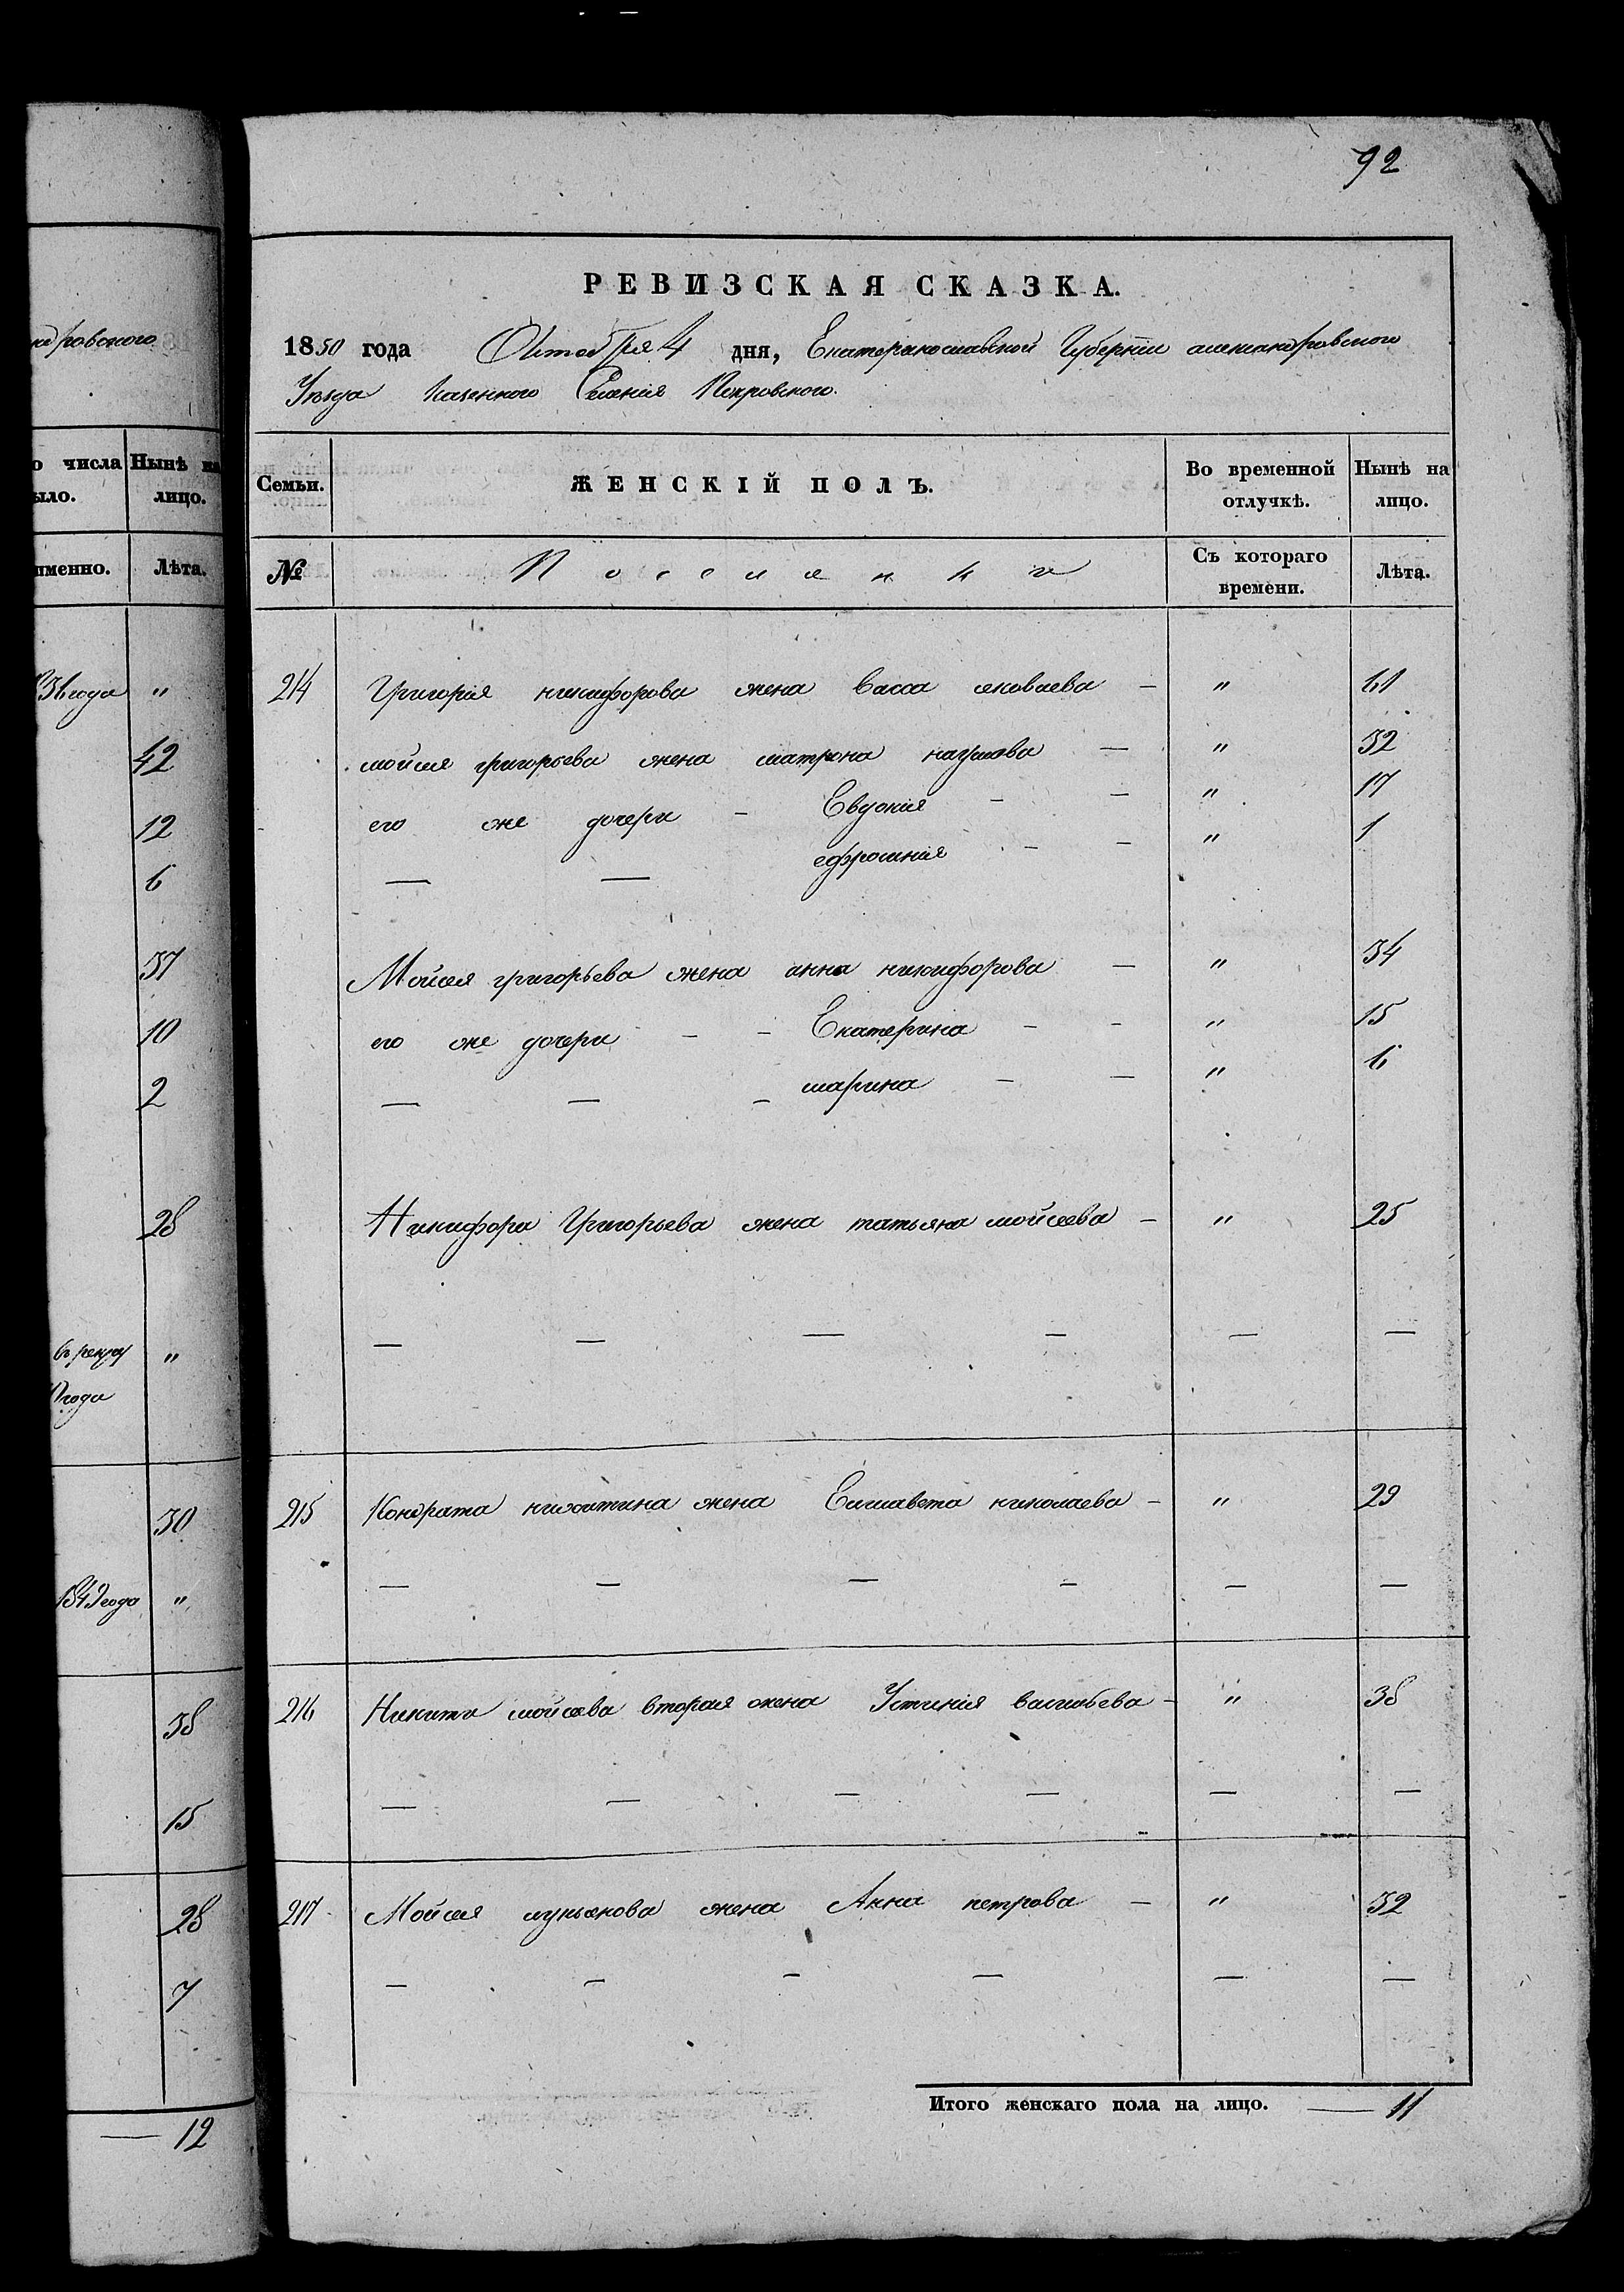 92
ндровского
о числа Нынѣ на
ыло. лицо.
именно. Лѣта.
31 года "
42
12
6
37
10
2
28
в рекру "
года
30
1849 года "
38
15
28
7
— 12
РЕВИЗСКАЯ СКАЗКА.
1850 года Октября 4 дня, Екатеринославской Губернiи александровского
Уѣзда Казенного Селенiя Покровского.
Семьи. ЖЕНСКIЙ ПОЛЪ. Во временной отлучкѣ. Нынѣ на лицо.
№ Поселянка Съ котораго времени. Лѣта.
214 Григорiя никифорова жена васса яковлева — " 61
мойсея григорьева жена матрона наумова — " 32
его же дочери — Евдокiя — — " 17
— — ефросинiя — — " 1
Мойсея григорьева жена анна никифорова — " 34
его же дочери — — Екатерина — — " 15
— — — марина — — " 6
Никифора Григорьева жена татьяна мойсеева — " 25
— — — — — —
215 Кондрата никитина жена Елисавета николаева — " 29
— — — — — —
216 Никиты мойсеева вторая жена Устинiя васильева — " 38
— — — — — —
217 Мойсея лукьянова жена Анна петрова — " 32
— — — — — —
Итого женскаго пола на лицо. — 11